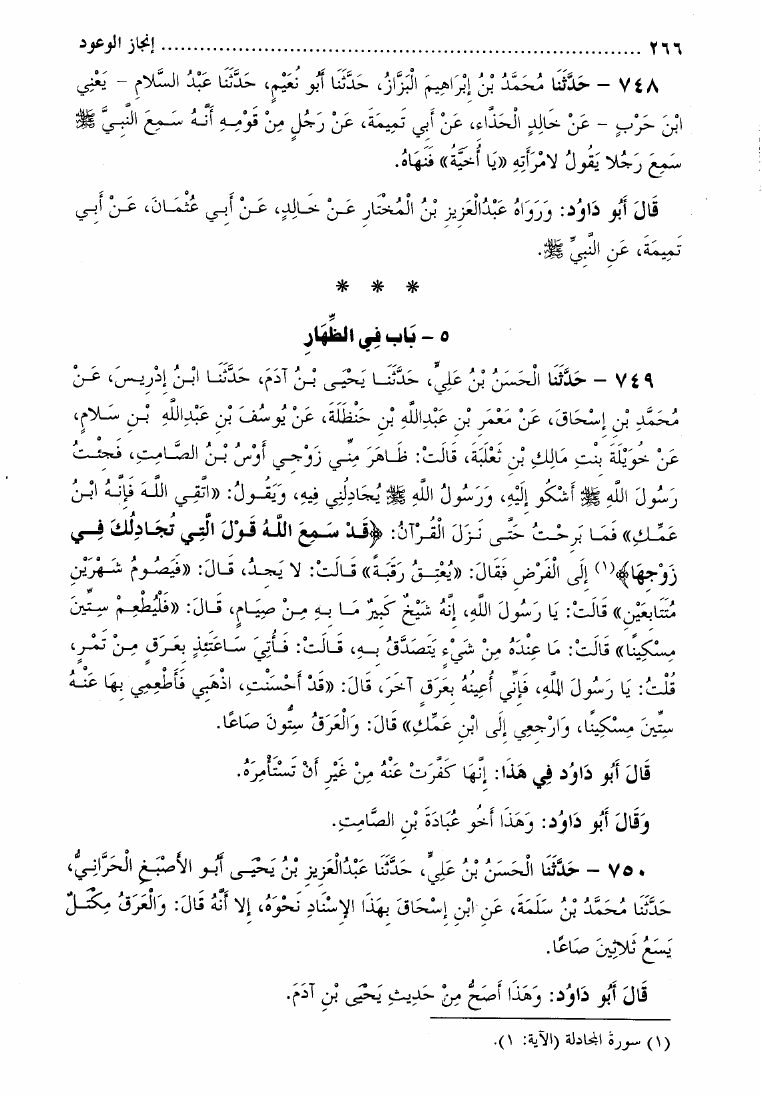 ٢٦٦ ........................................................................ إنجاز الوعود
٧٤٨ – حَدَّثَنَا مُحَمَّدُ بْنُ إِبْرَاهِيمَ الْبَزَّازُ، حَدَّثَنَا أَبُو نُعَيْمٍ، حَدَّثَنَا عَبْدُ السَّلَامِ – يَعْنِي
ابْنَ حَرْبٍ – عَنْ خَالِدٍ الْحَذَّاءِ، عَنْ أَبِي تَمِيمَةَ، عَنْ رَجُلٍ مِنْ قَوْمِهِ أَنَّهُ سَمِعَ النَّبِيَّ ﷺ
سَمِعَ رَجُلا يَقُولُ لامْرَأَتِهِ «يَا أُخَيَّةُ» فَنَهَاهُ.
قَالَ أَبُو دَاوُد: وَرَوَاهُ عَبْدُالْعَزِيزِ بْنُ الْمُخْتَارِ عَنْ خَالِدٍ، عَنْ أَبِي عُثْمَانَ، عَنْ أَبِي
تَمِيمَةَ، عَنِ النَّبِيِّ ﷺ.
* * *
٥ – بَاب فِي الظِّهَارِ
٧٤٩ – حَدَّثَنَا الْحَسَنُ بْنُ عَلِيٍّ، حَدَّثَنَا يَحْيَى بْنُ آدَمَ، حَدَّثَنَا ابْنُ إِدْرِيسَ، عَنْ
مُحَمَّدِ بْنِ إِسْحَاقَ، عَنْ مَعْمَرِ بْنِ عَبْدِاللَّهِ بْنِ حَنْظَلَةَ، عَنْ يُوسُفَ بْنِ عَبْدِاللَّهِ بْنِ سَلامٍ،
عَنْ خُوَيْلَةَ بِنْتِ مَالِكِ بْنِ ثَعْلَبَةَ، قَالَتْ: ظَاهَرَ مِنِّي زَوْجِي أَوْسُ بْنُ الصَّامِتِ، فَجِئْتُ
رَسُولَ اللَّهِ ﷺ أَشْكُو إِلَيْهِ، وَرَسُولُ اللَّهِ ﷺ يُجَادِلُنِي فِيهِ، وَيَقُولُ: «اتَّقِي اللَّهَ فَإِنَّهُ ابْنُ
عَمِّكِ» فَمَا بَرِحْتُ حَتَّى نَزَلَ الْقُرْآنُ: ﴿قَدْ سَمِعَ اللَّهُ قَوْلَ الَّتِي تُجَادِلُكَ فِي
زَوْجِهَا﴾(١) إِلَى الْفَرْضِ فَقَالَ: «يُعْتِقُ رَقَبَةً» قَالَتْ: لا يَجِدُ، قَالَ: «فَيَصُومُ شَهْرَيْنِ
مُتَتَابِعَيْنِ» قَالَتْ: يَا رَسُولَ اللَّهِ، إِنَّهُ شَيْخٌ كَبِيرٌ مَا بِهِ مِنْ صِيَامٍ، قَالَ: «فَلْيُطْعِمْ سِتِّينَ
مِسْكِينًا» قَالَتْ: مَا عِنْدَهُ مِنْ شَيْءٍ يَتَصَدَّقُ بِهِ، قَالَتْ: فَأُتِيَ سَاعَتَئِذٍ بِعَرَقٍ مِنْ تَمْرٍ،
قُلْتُ: يَا رَسُولَ اللَّهِ، فَإِنِّي أُعِينُهُ بِعَرَقٍ آخَرَ، قَالَ: «قَدْ أَحْسَنْتِ، اذْهَبِي فَأَطْعِمِي بِهَا عَنْهُ
سِتِّينَ مِسْكِينًا، وَارْجِعِي إِلَى ابْنِ عَمِّكِ» قَالَ: وَالْعَرَقُ سِتُّونَ صَاعًا.
قَالَ أَبُو دَاوُد فِي هَذَا: إِنَّهَا كَفَّرَتْ عَنْهُ مِنْ غَيْرِ أَنْ تَسْتَأْمِرَهُ.
وَقَالَ أَبُو دَاوُد: وَهَذَا أَخُو عُبَادَةَ بْنِ الصَّامِتِ.
٧٥٠ – حَدَّثَنَا الْحَسَنُ بْنُ عَلِيٍّ، حَدَّثَنَا عَبْدُالْعَزِيزِ بْنُ يَحْيَى أَبُو الأَصْبَغِ الْحَرَّانِيُّ،
حَدَّثَنَا مُحَمَّدُ بْنُ سَلَمَةَ، عَنِ ابْنِ إِسْحَاقَ بِهَذَا الإِسْنَادِ نَحْوَهُ، إِلا أَنَّهُ قَالَ: وَالْعَرَقُ مِكْتَلٌ
يَسَعُ ثَلاثِينَ صَاعًا.
قَالَ أَبُو دَاوُد: وَهَذَا أَصَحُّ مِنْ حَدِيثِ يَحْيَى بْنِ آدَمَ.
(١) سورة المجادلة (الآية: ١).